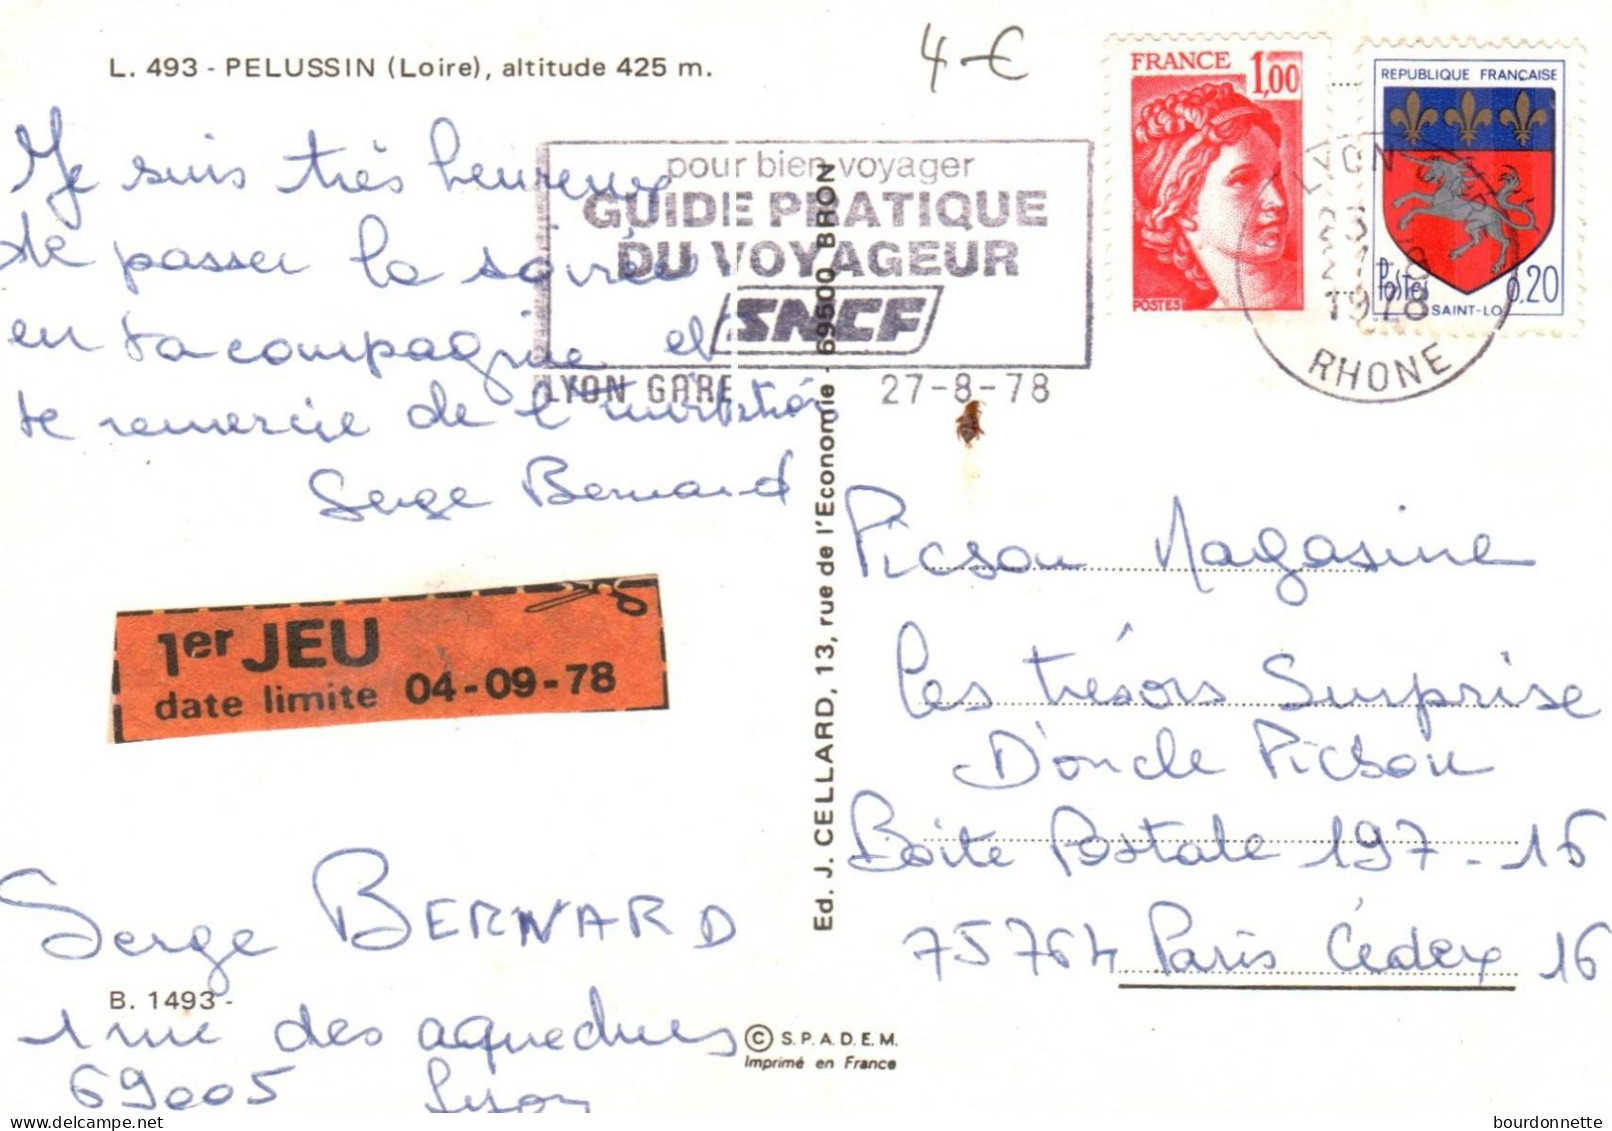 L. 493 - PELUSSIN (Loire), altitude 425 m.
4 €
FRANCE 1,00
POSTES
REPUBLIQUE FRANÇAISE
Postes 0.20
SAINT-LO
LYON
23
27-8
1978
RHONE
pour bien voyager
GUIDE PRATIQUE
DU VOYAGEUR
SNCF
LYON GARE 27-8-78
Je suis très heureux
de passer la soirée
en ta compagnie et
te remercie de l'invitation
Serge Bernard
1er JEU
date limite 04-09-78
Serge BERNARD
B. 1493 -
1 rue des aqueducs
69005 Lyon
Ed. J. CELLARD, 13, rue de l'Economie - 69500 BRON
© S.P.A.D.E.M.
Imprimé en France
Picsou Magasine
Les trésors Surprise
D'oncle Picsou
Boite Postale 197-16
75764 Paris Cédex 16
bourdonnette